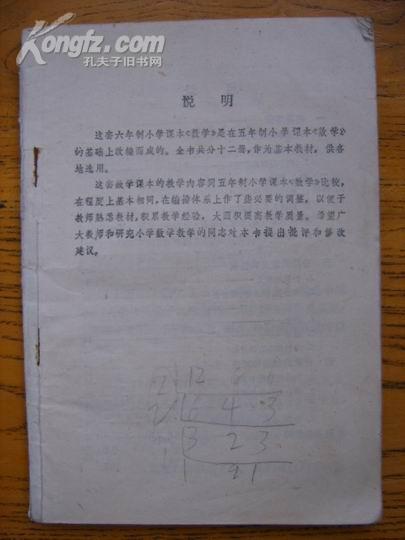 Kongfz.com
孔夫子旧书网
说 明
这套六年制小学课本《数学》是在五年制小学课本《数学》
的基础上改编而成的。全书共分十二册，作为基本教材，供各
地选用。
这套数学课本的教学内容同五年制小学课本《数学》比较，
在程度上基本相同，在编排体系上作了些必要的调整，以便于
教师熟悉教材，积累教学经验，大面积提高教学质量。希望广
大教师和研究小学数学教学的同志对本书提出批评和修改
建议。
2 12 6 6
2 6 4 3
3 2 3
1 2 1